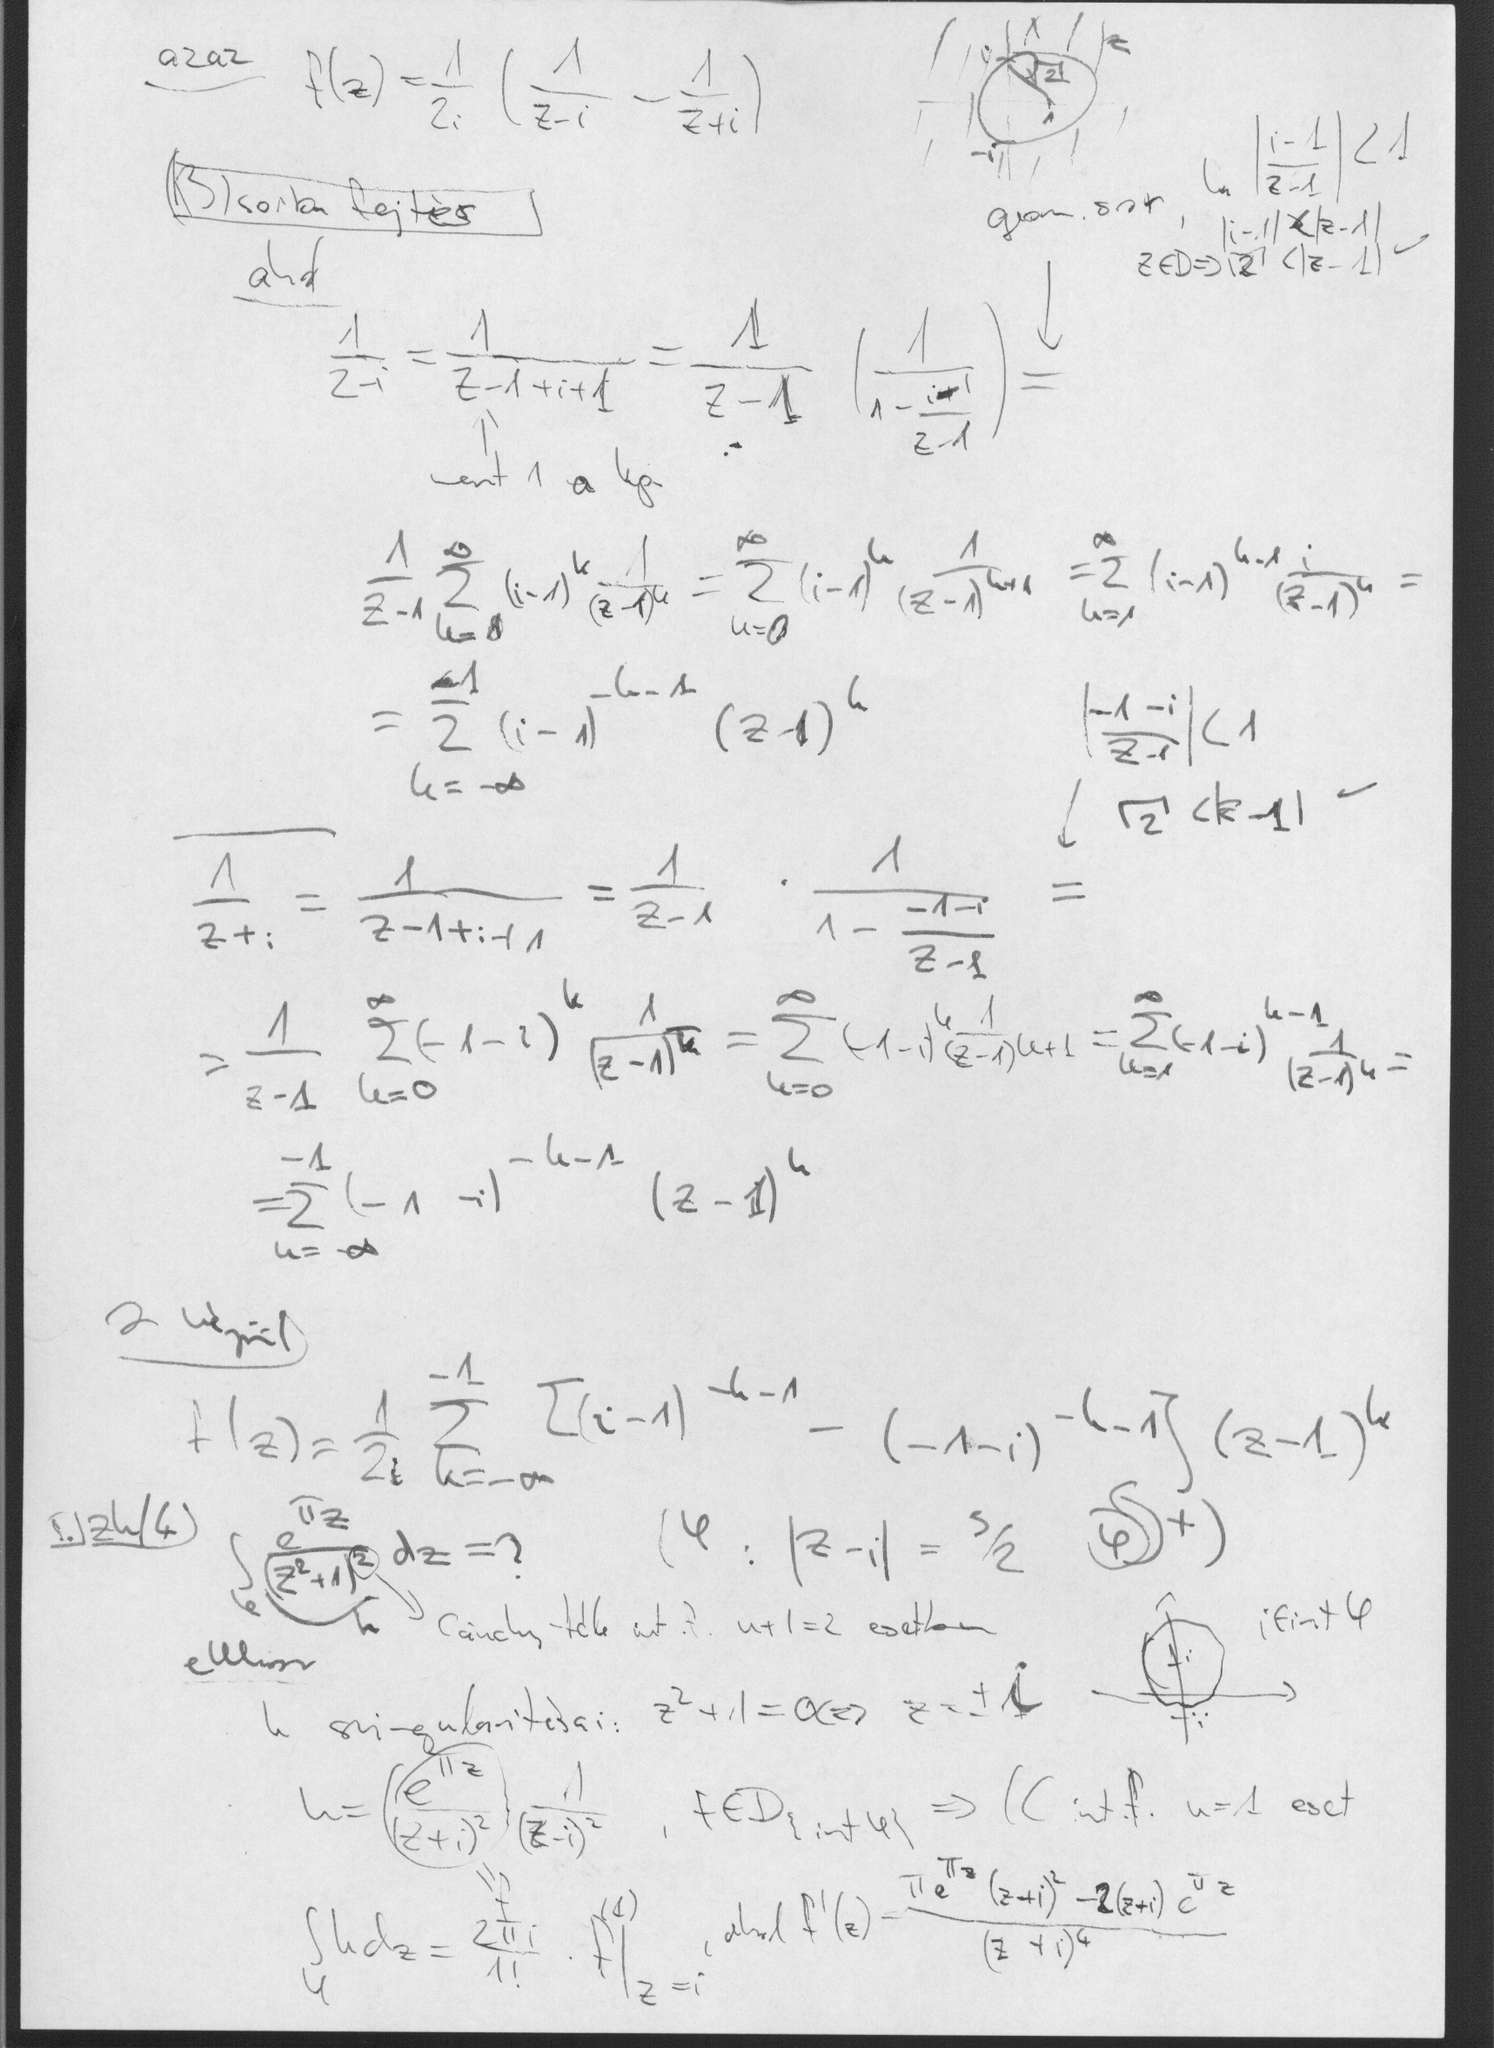 azaz f(z) = 1/2i (1/(z-i) - 1/(z+i))
i
√2
1
-i
(B) sorba fejtés
geom. sor, ha |(i-1)/(z-1)| < 1
|i-1| < |z-1|
z∈D ⇒ √2 < |z-1| ✓
ahol
1/(z-i) = 1/(z-1+i+1) = 1/(z-1) (1/(1 - (i-1)/(z-1))) =
mert 1 a kp.
1/(z-1) ∑_{k=0}^{∞} (i-1)^k 1/(z-1)^k = ∑_{k=0}^{∞} (i-1)^k 1/(z-1)^{k+1} = ∑_{k=1}^{∞} (i-1)^{k-1} 1/(z-1)^k =
= ∑_{k=-∞}^{-1} (i-1)^{-k-1} (z-1)^k
|(-1-i)/(z-1)| < 1
√2 < |z-1| ✓
1/(z+i) = 1/(z-1+i+1) = 1/(z-1) · 1/(1 - (-1-i)/(z-1)) =
= 1/(z-1) ∑_{k=0}^{∞} (-1-i)^k 1/(z-1)^k = ∑_{k=0}^{∞} (-1-i)^k 1/(z-1)^{k+1} = ∑_{k=1}^{∞} (-1-i)^{k-1} 1/(z-1)^k =
= ∑_{k=-∞}^{-1} (-1-i)^{-k-1} (z-1)^k
f(z) = 1/2i ∑_{k=-∞}^{-1} [(i-1)^{-k-1} - (-1-i)^{-k-1}] (z-1)^k
I. zh/4 ∫_φ e^{πz}/(z²+1)² dz = ? (φ: |z-i| = 3/2 φ +)
h
Cauchy-féle int. f. n+1=2 esetben
i ∈ int φ
i
-i
h szingularitásai: z²+1=0 ⇔ z=±i
h = (e^{πz}/(z+i)²) 1/(z-i)², f∈D{int φ} ⇒ (C int. f. n=1 eset
f
∫_φ h dz = 2πi/1! · f^{(1)}|_{z=i}, ahol f'(z) = (πe^{πz}(z+i)² - 2(z+i)e^{πz})/(z+i)⁴